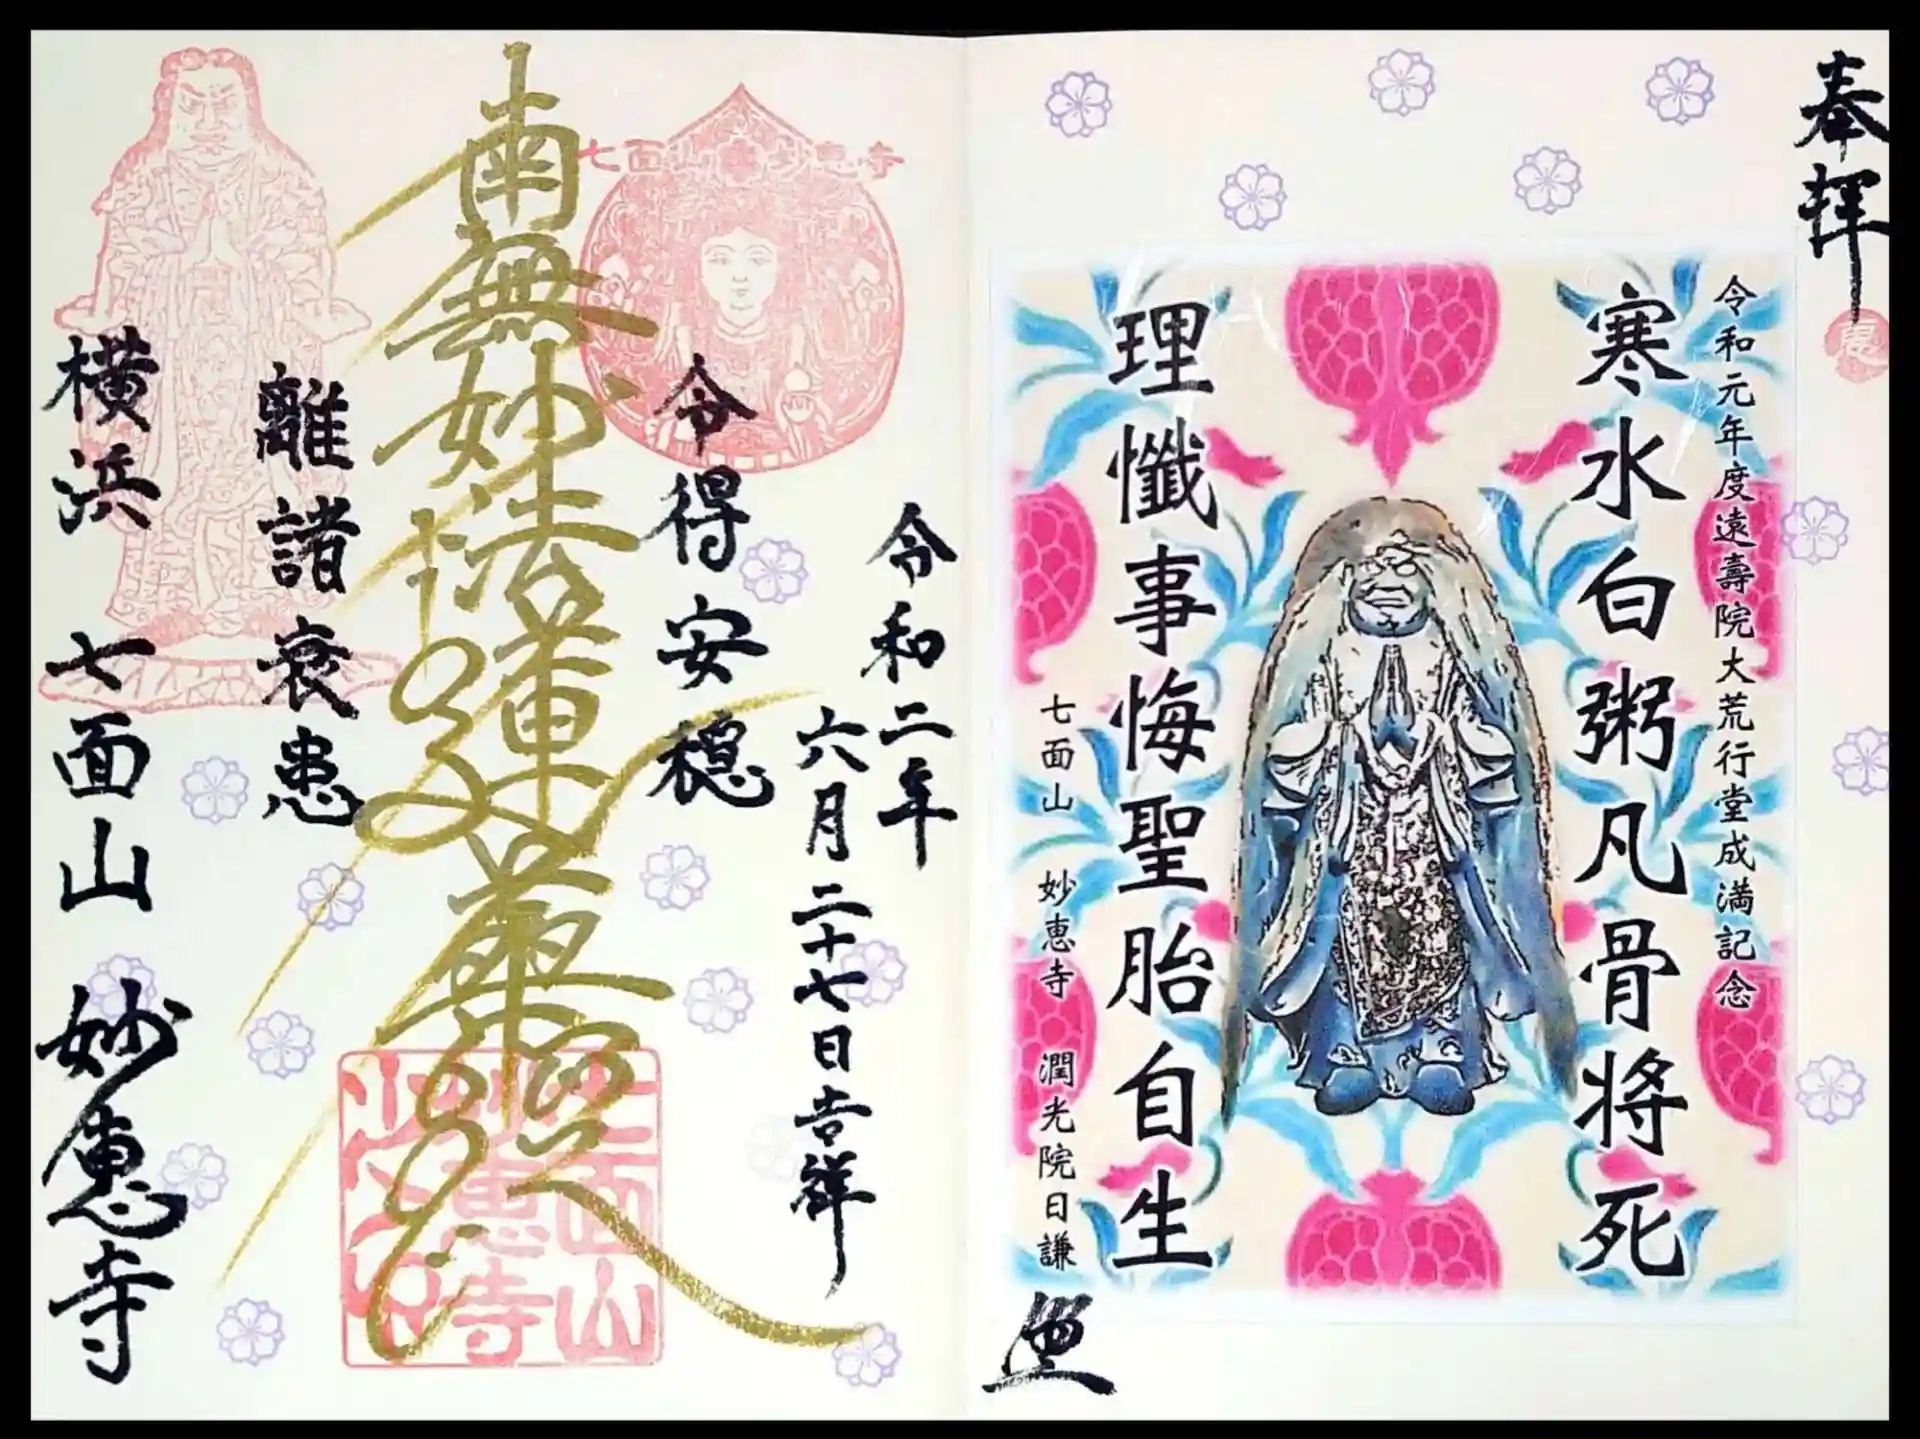 奉拝
令和元年度遠壽院大荒行堂成満記念
寒水白粥凡骨将死
理懺事悔聖胎自生
七面山 妙恵寺 潤光院日謙
令和二年
六月二十七日吉祥
七面山 妙恵寺
令得安穏
南無妙法蓮華経
離諸衰患
横浜 七面山 妙恵寺